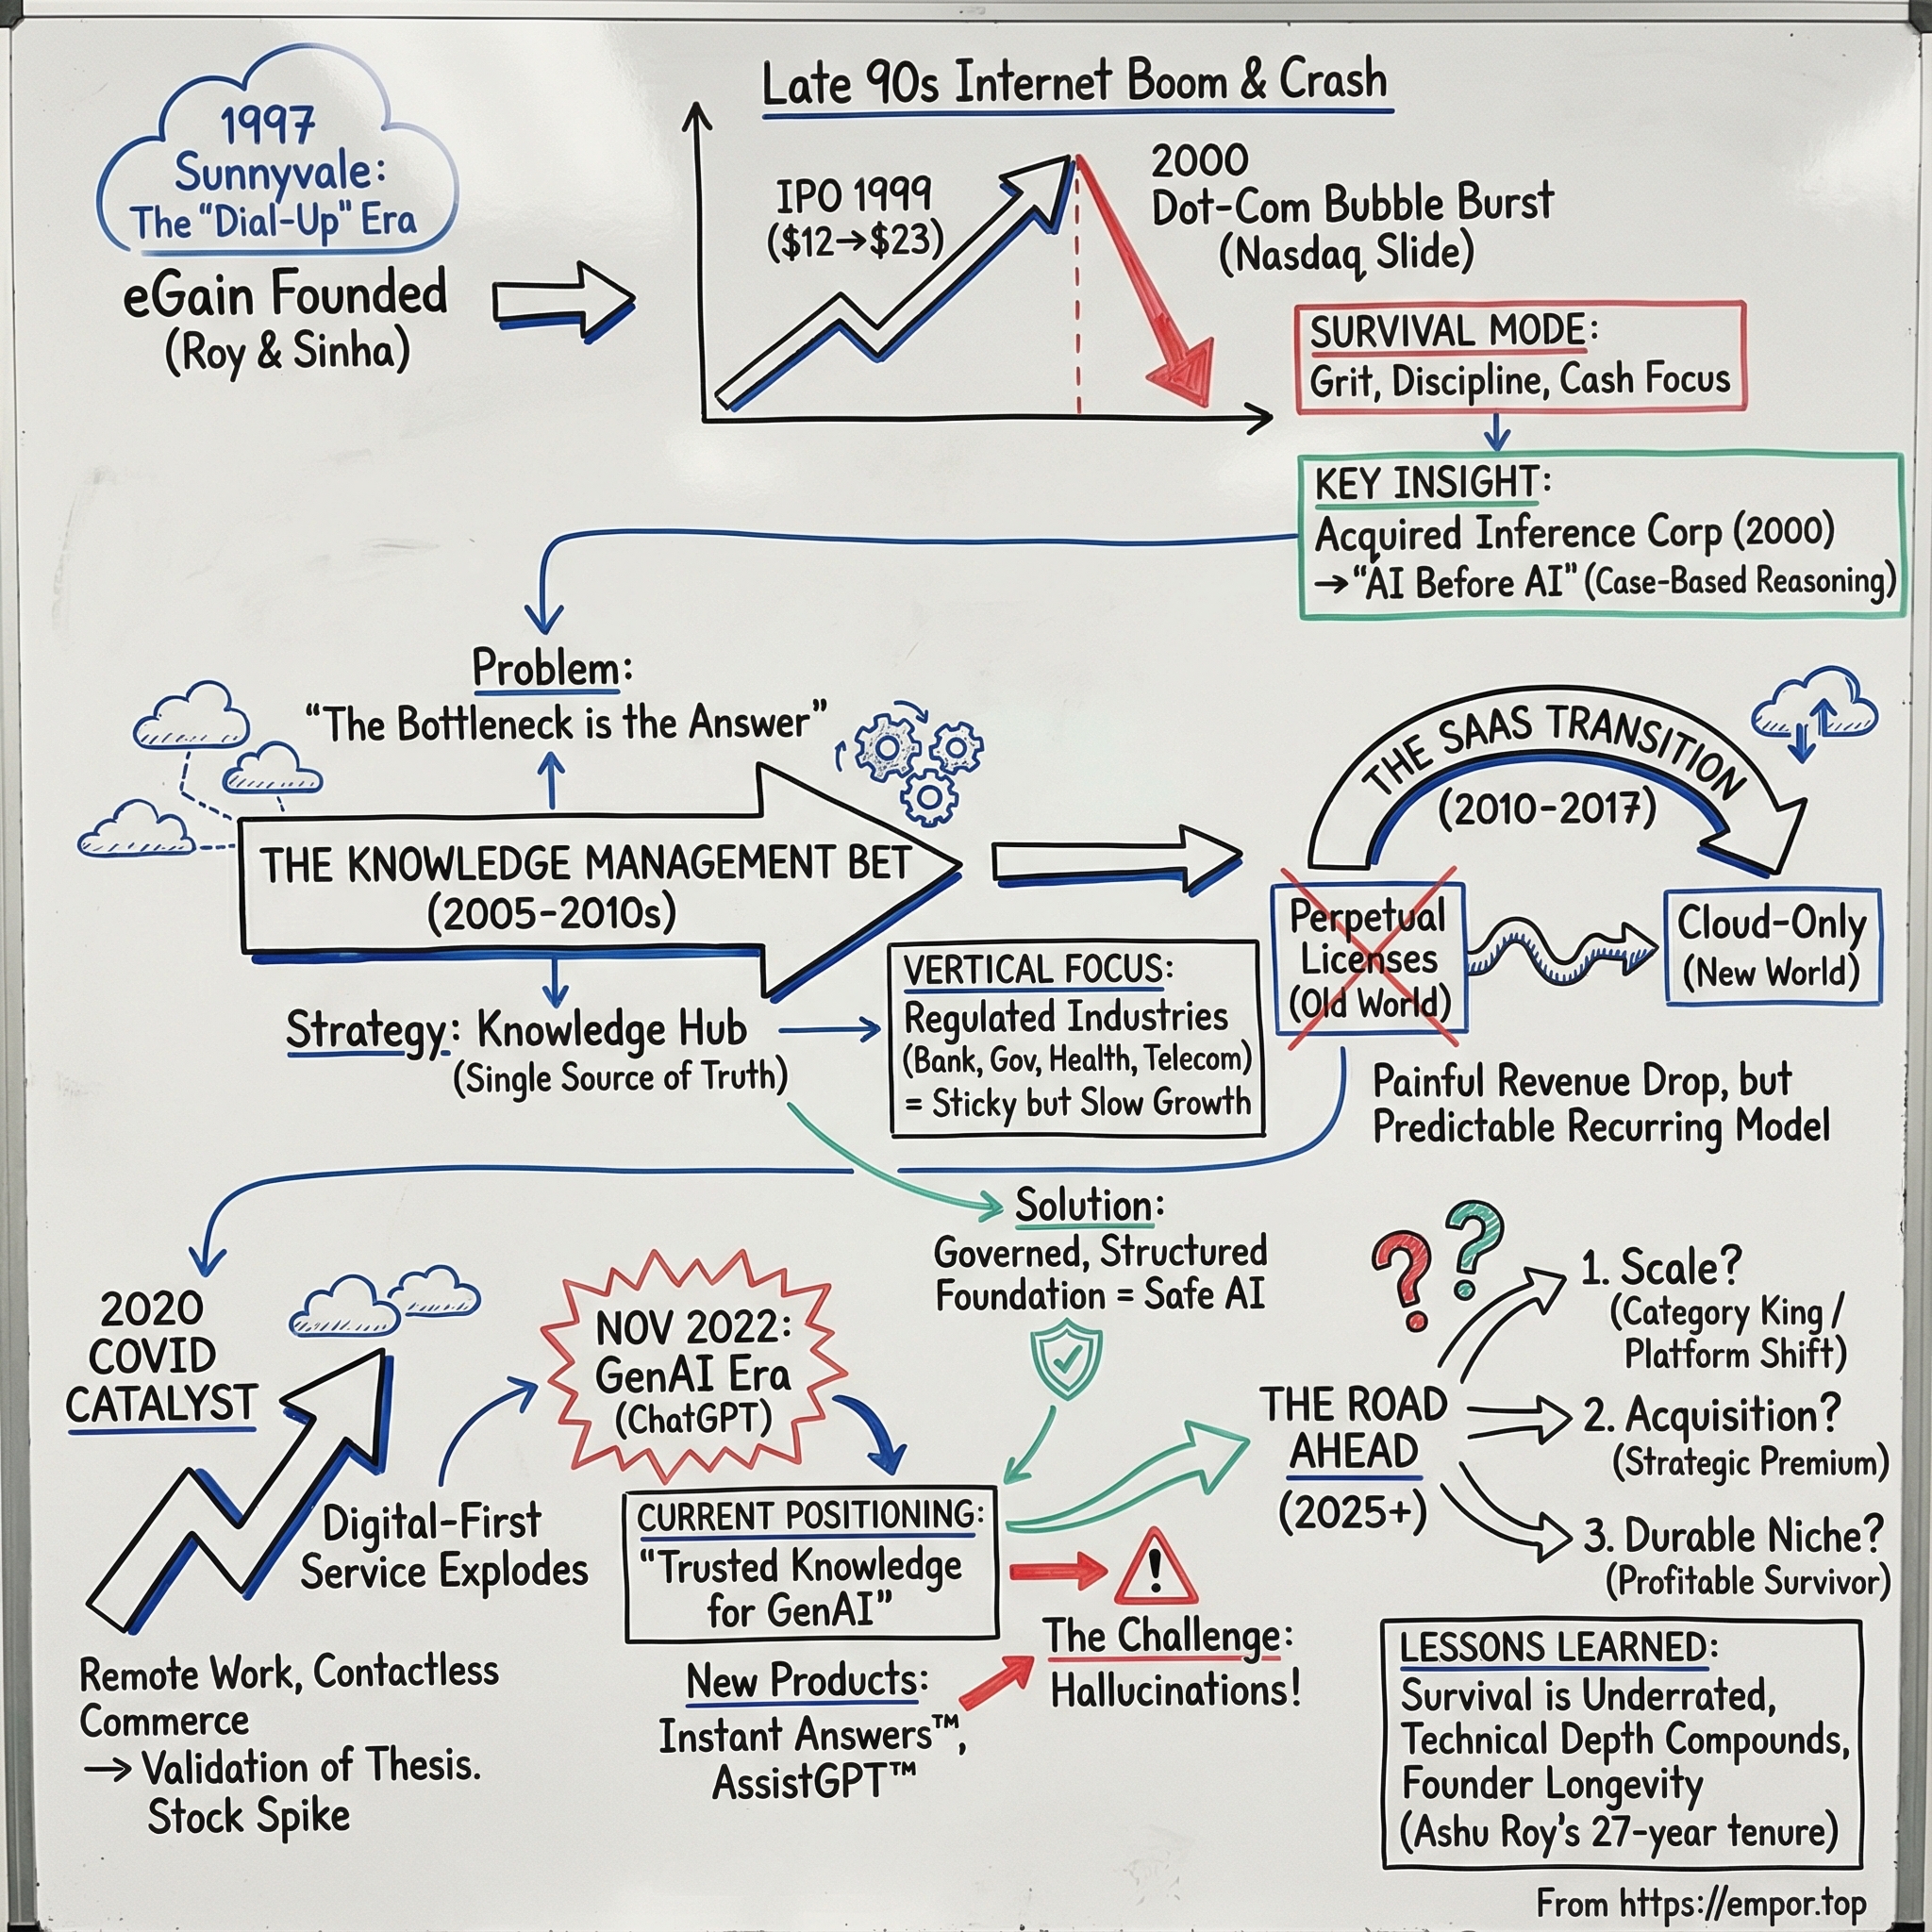 1997
Sunnyvale:
The "Dial-Up" Era
eGain Founded
(Roy & Sinha)
Late 90s Internet Boom & Crash
IPO 1999
($12→$23)
2000
Dot-Com Bubble Burst
(Nasdaq Slide)
SURVIVAL MODE:
Grit, Discipline, Cash Focus
KEY INSIGHT:
Acquired Inference Corp (2000)
→"AI Before AI" (Case-Based Reasoning)
Problem:
"The Bottleneck is the Answer"
THE KNOWLEDGE MANAGEMENT BET
(2005-2010s)
Strategy: Knowledge Hub
(Single Source of Truth)
VERTICAL FOCUS:
Regulated Industries
(Bank, Gov, Health, Telecom)
= Sticky but Slow Growth
THE SAAS TRANSITION
(2010-2017)
Perpetual
Licenses
(Old World)
Cloud-Only
(New World)
Painful Revenue Drop, but
Predictable Recurring Model
2020
COVID
CATALYST
Digital-First
Service Explodes
Remote Work, Contactless
Commerce
→ Validation of Thesis.
Stock Spike
NOV 2022:
GenAI Era
(ChatGPT)
Solution:
Governed, Structured
Foundation = Safe AI
CURRENT POSITIONING:
"Trusted Knowledge
for GenAI"
New Products:
Instant Answers™,
AssistGPT™
!
The Challenge:
Hallucinations!
? ?
THE ROAD
AHEAD
(2025+)
1. Scale?
(Category King /
Platform Shift)
2. Acquisition?
(Strategic Premium)
3. Durable Niche?
(Profitable Survivor)
LESSONS LEARNED:
Survival is Underrated,
Technical Depth Compounds,
Founder Longevity
(Ashu Roy's 27-year tenure)
From https://empor.top